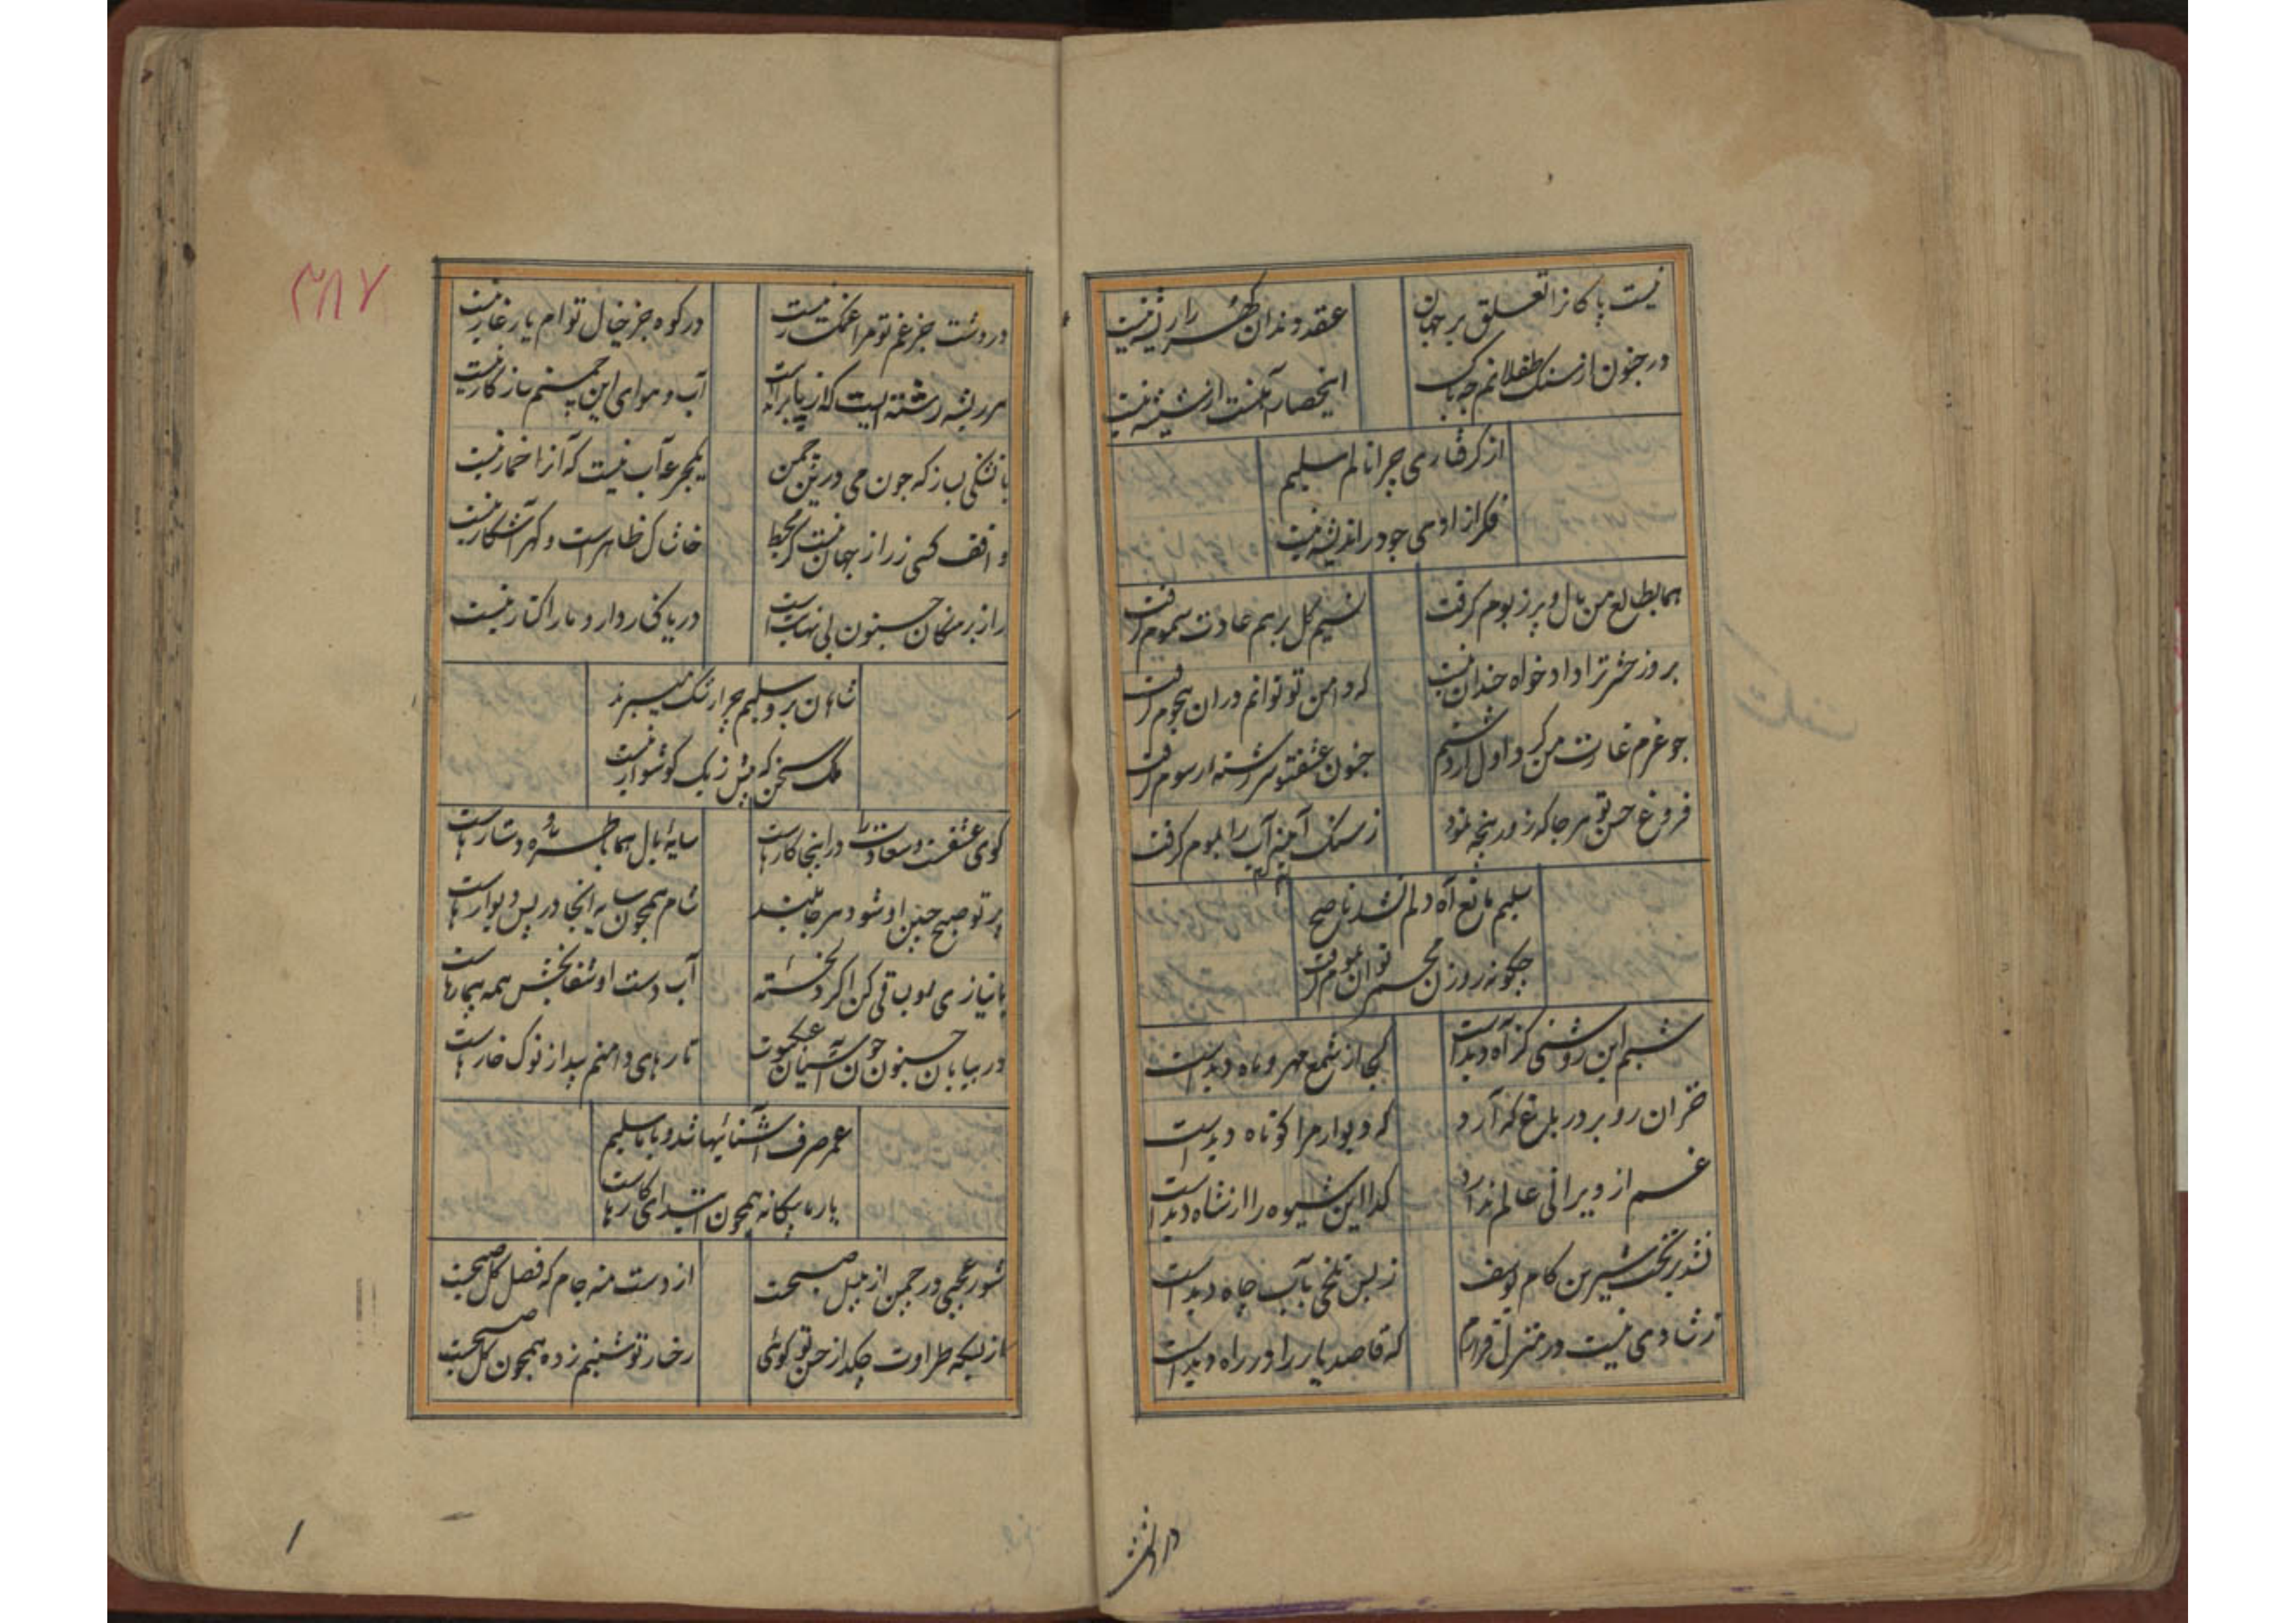 نیست پاکانرا تعلق بر جهان
عقد دندان گهر را ریشه نیست
در جنون از سنگ طفلانم چه باک
این حصار آهنست از شیشه نیست
از گرفتاری چرا نالم سلیم
فکر آزادی چو در اندیشه نیست
هما بطالع من بال و پر ز بوم گرفت
نسیم گل برهم عادت سموم گرفت
بروز حشر ترا دادخواه چندان نیست
که دامن تو توانم دران هجوم گرفت
چو عزم غارت من کرد اول از دستم
جنون عشق تو سررشته رسوم گرفت
فروغ حسن تو هرجا که زور پنجه نمود
ز سنگ آینه آب را بموم گرفت
سلیم مانع آه دلم نشد ناصح
چگونه روزن مجمر توان بموم گرفت
شبم این روشنی کز آه دیدست
کجا از شمع مهر و ماه دیدست
خزان رو بر در باغ که آرد
که دیوار مرا کوتاه دیدست
غم از ویرانی عالم ندارد
گدا این شیوه را از شاه دیدست
نشد بر تخت شیرین کام یوسف
ز بس تلخی بآب چاه دیدست
ز شادی نیست در منزل قرارم
که قاصد یار را در راه دیدست
در دشت
۳۸۷
در دشت جز غم تو مرا غمگسار نیست
در کوه جز خیال توام یار غار نیست
هر ریشه رشته‌ایست که از پا برآمدست
آب و هوای این چمنم سازگار نیست
با تشنگی بساز که چون می درین چمن
یکجرعه آب نیست که آنرا خمار نیست
واقف کسی ز راز جهان نیست کز محیط
خاشاک ظاهرست و گهر آشکار نیست
راز برهنگان جنون بی نهایتست
دریا کنار دارد و ما را کنار نیست
شاهان برو سلیم چرا رشک میبرند
ملک سخن که بیش ز یک گوشوار نیست
کوی عشقست و سعادت را در اینجا کارهاست
سایه بال هما با طره دستارهاست
پرتو صبح جبین او شود هرجا بلند
شام همچون سایه آنجا در پس دیوارهاست
با نیازی می لب ساقی کن اگر دلخسته
آب دست او شفابخش همه بیمارهاست
در بیابان جنون چون آشیان عنکبوت
تارهای دامنم پیدا ز نوک خارهاست
عمر صرف آشنائیها شد و با ما سلیم
یار ما بیگانه همچون ابتدای کارهاست
شور عجبی در چمن از بلبل صبحست
از دست منه جام که فصل گل صبحست
از بسکه طراوت چکد از حسن تو گوئی
رخسار تو شبنم زده همچون گل صبحست